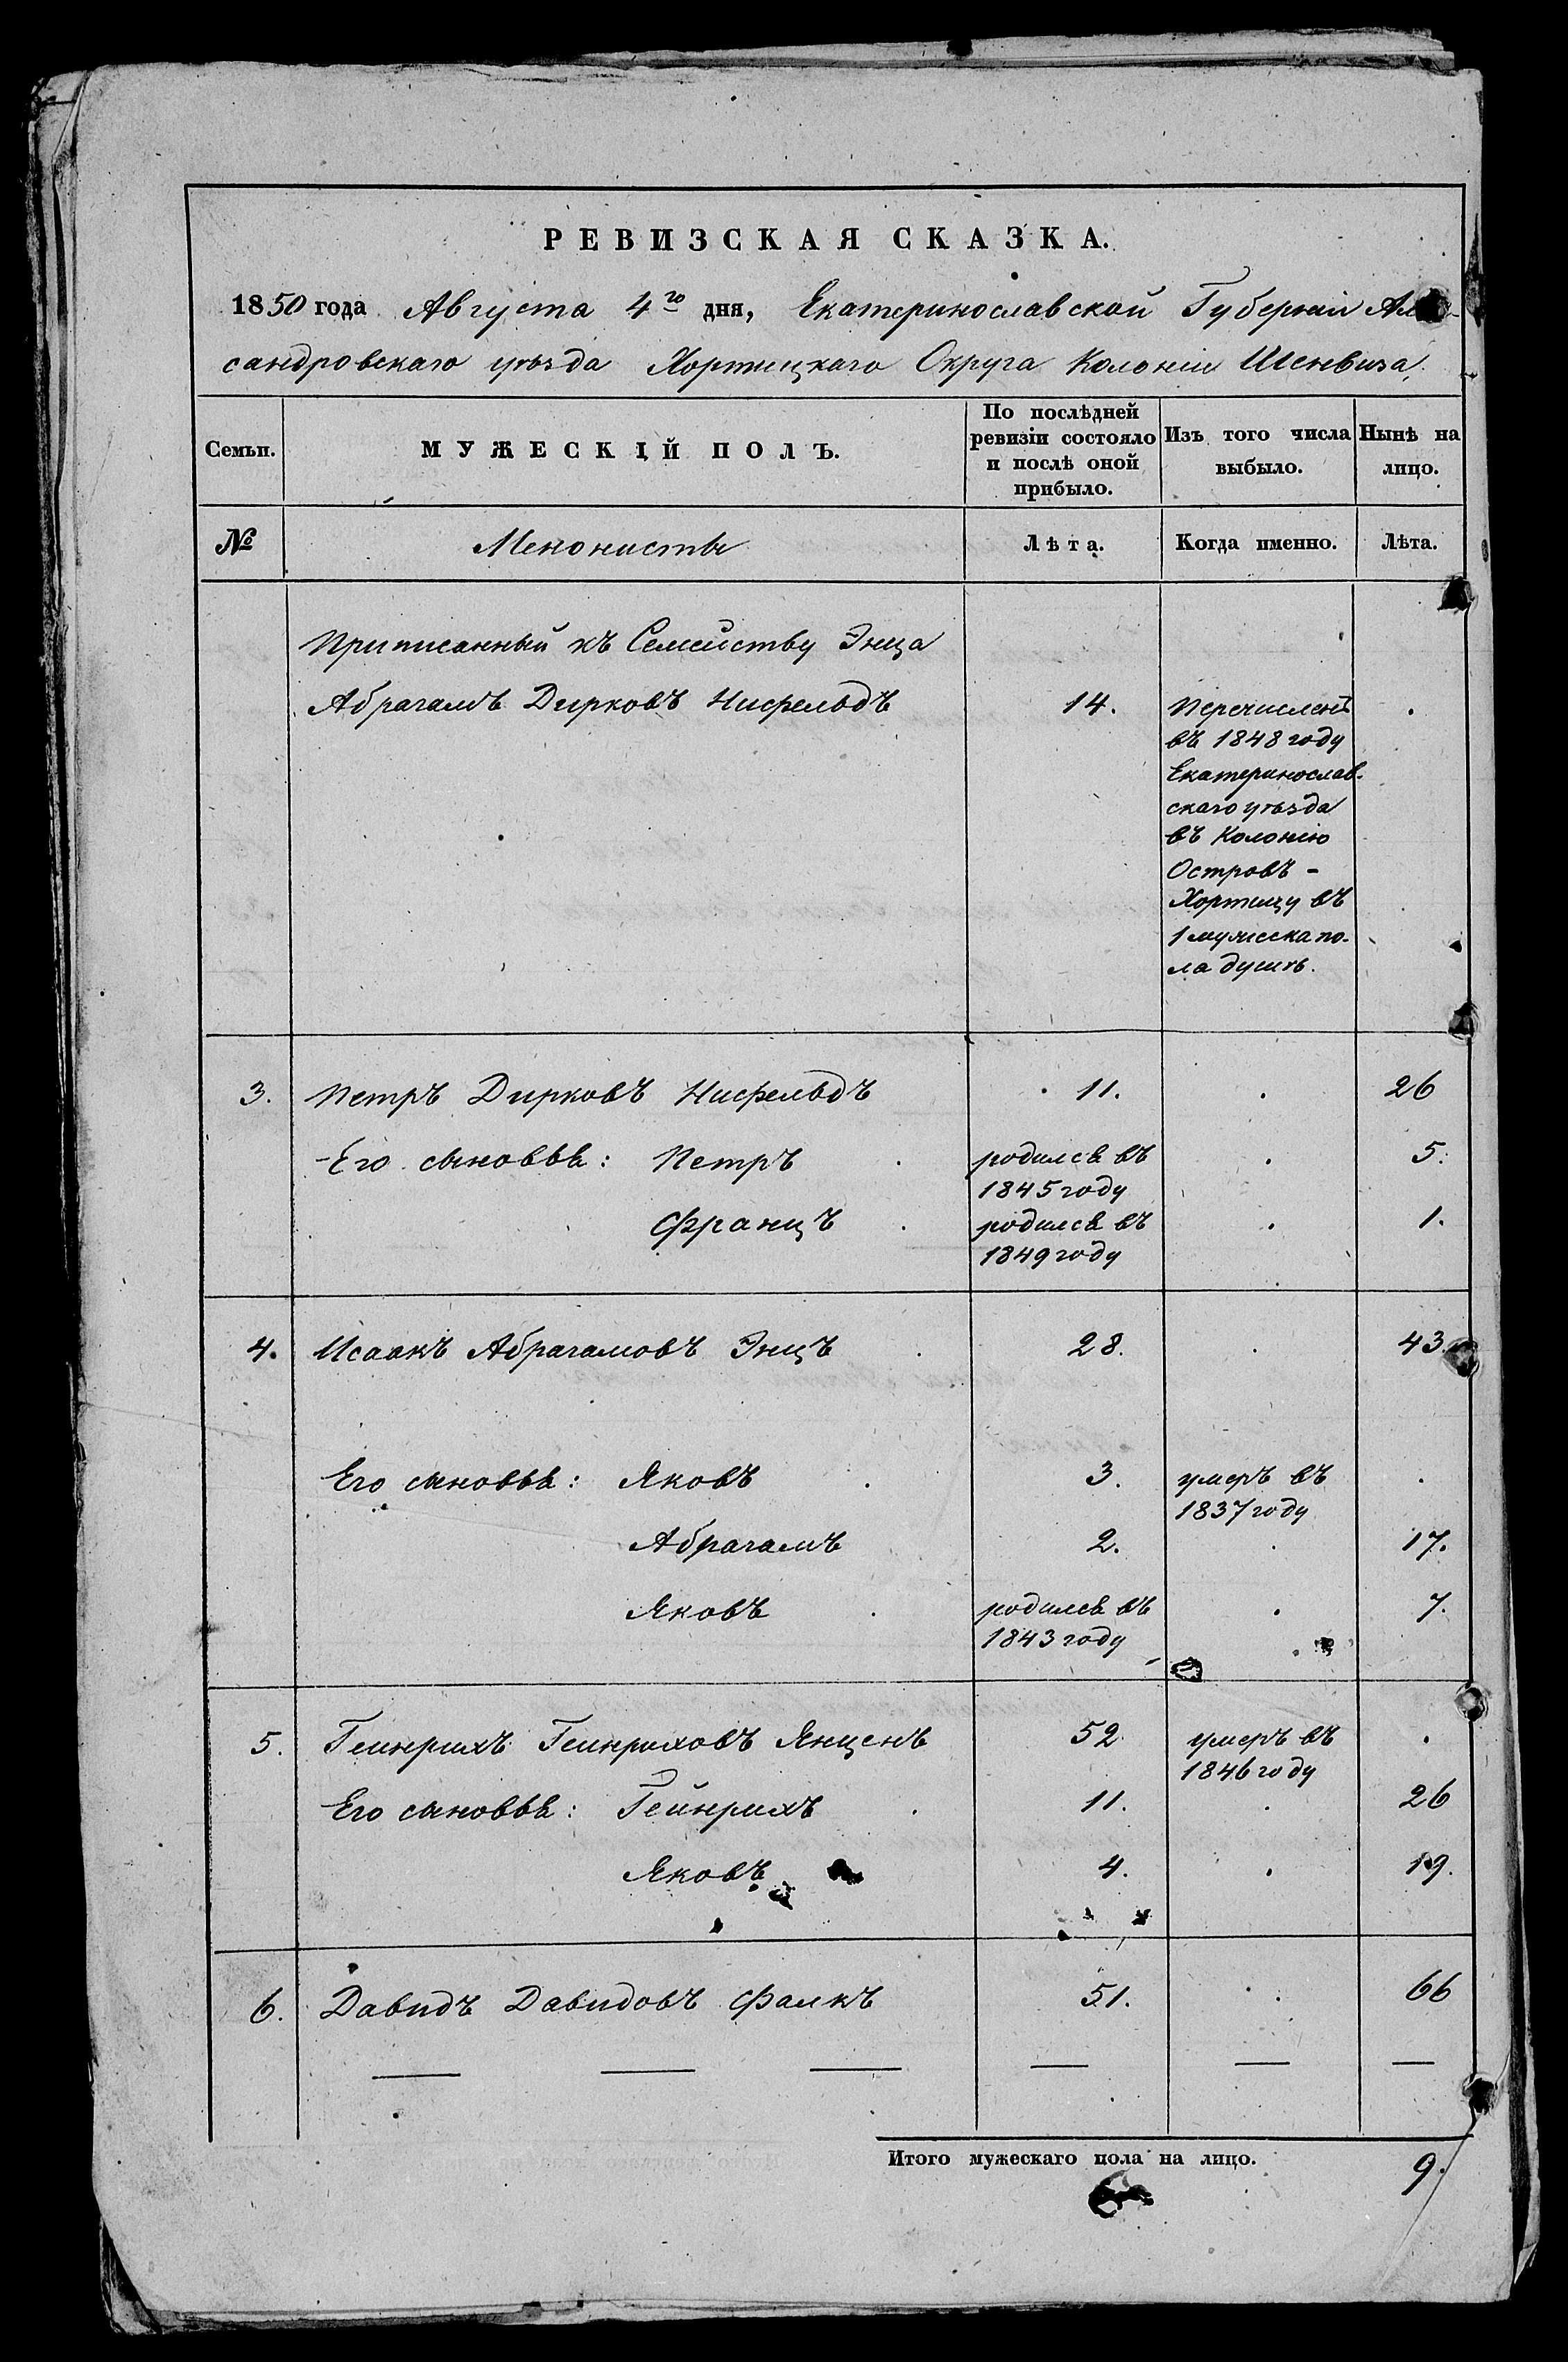 РЕВИЗСКАЯ СКАЗКА.
1850 года Августа 4го дня, Екатеринославской Губерніи Алек-
сандровскаго уѣзда Хортицкаго Округа Колоніи Шенвиза.
Семьи. МУЖЕСКІЙ ПОЛЪ. По послѣдней ревизіи состояло и послѣ оной прибыло. Изъ того числа выбыло. Нынѣ на лицо.
№ Менонисты Лѣта. Когда именно. Лѣта.
Приписанный къ Семейству Энца
Абрагамъ Дирковъ Нисфельдъ 14. Перечисленъ
въ 1848 году
Екатеринослав-
скаго уѣзда
въ Колонію
Островъ -
Хортицу въ
1 мужеска по-
ла душѣ.
3. Петръ Дирковъ Нисфельдъ 11. 26
Его сыновья: Петръ родился въ 5.
1845 году
Францъ родился въ 1.
1849 году
4. Исаакъ Абрагамовъ Энцъ 28. 43.
Его сыновья: Яковъ 3. умеръ въ
1837 году
Абрагамъ 2. 17.
Яковъ родился въ 7.
1843 году
5. Гейнрихъ Гейнриховъ Янценъ 52 умеръ въ
1846 году
Его сыновья: Гейнрихъ 11. 26
Яковъ 4. 19.
6. Давидъ Давидовъ Фалкъ 51. 66
Итого мужескаго пола на лицо. 9.